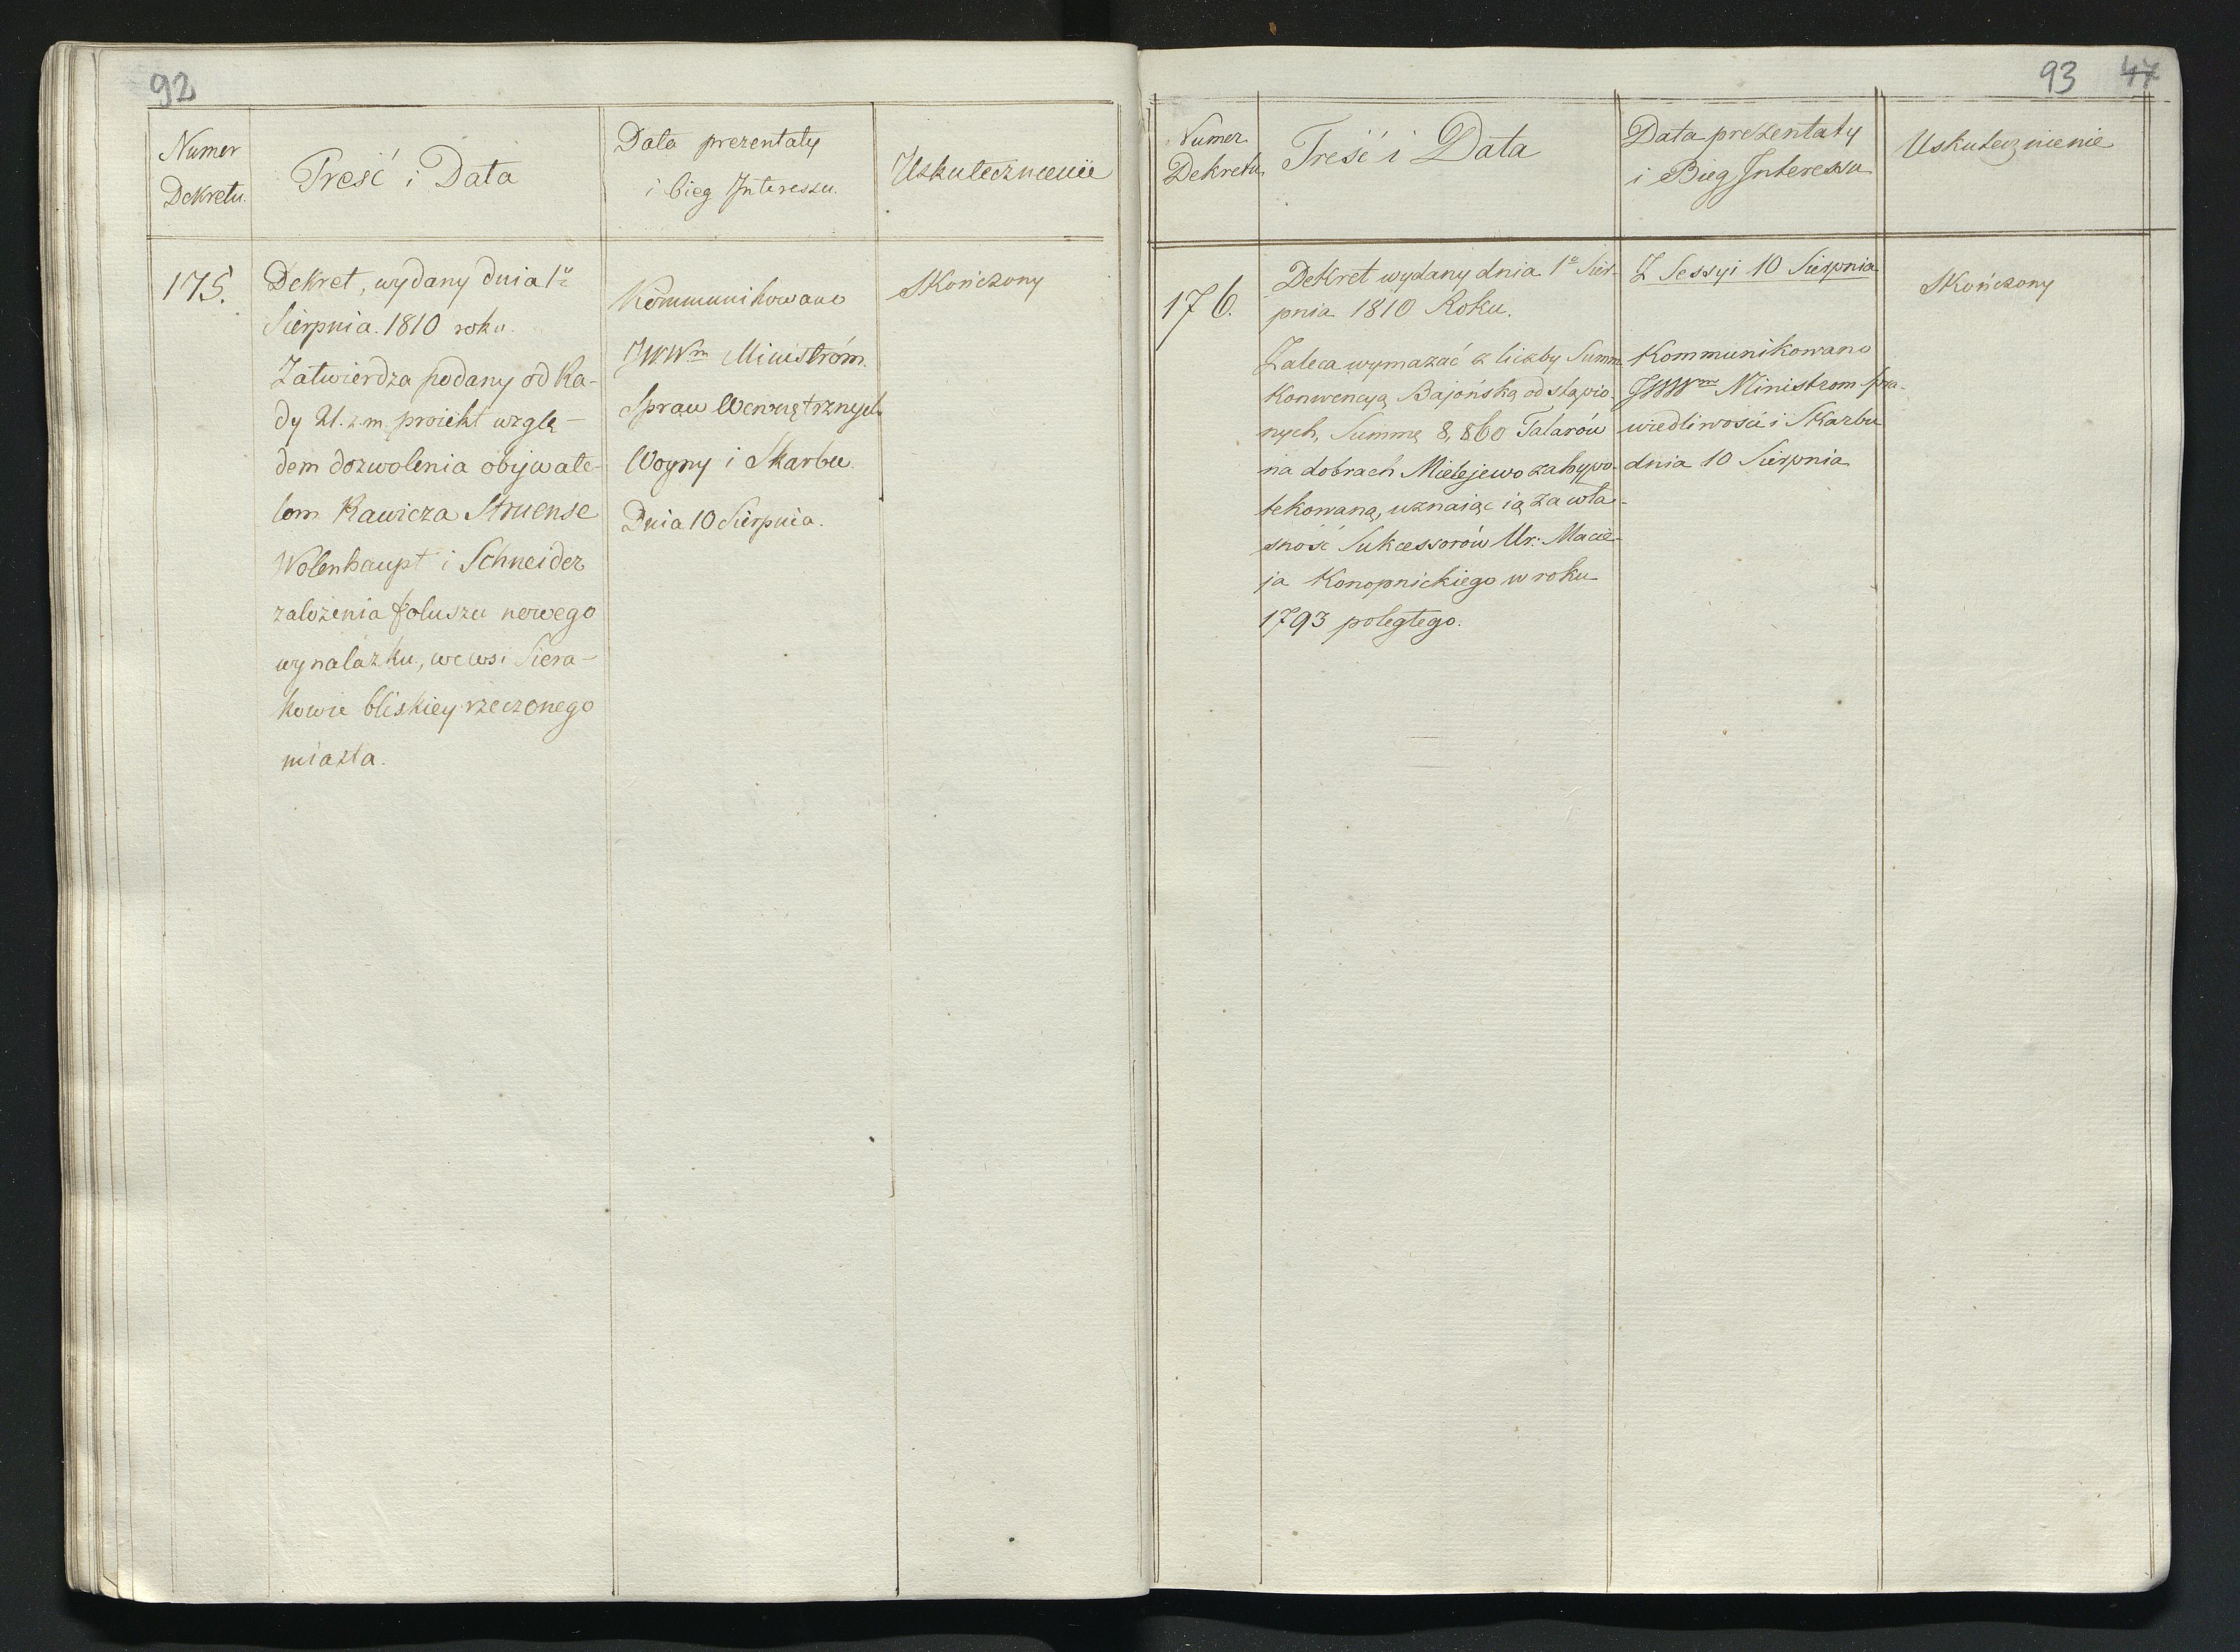 92
Numer
Dekretu.
Treść i Data
Data prezentaty
i bieg Interessu.
Uskutecznienie
175.
Dekret, wydany dnia 1º
Sierpnia. 1810 roku.
Zatwierdza podany od Ra-
dy 21. z. m. proiekt wzglę-
dem dozwolenia obywate-
lom Rawicza Struense
Wolenhaupt i Schneider
założenia foluszu nowego
wynalazku, we wsi Siera-
kowie bliskiey rzeczonego
miasta.
Kommunikowano
JWWm Ministróm
Spraw Wewnętrznych
Woyny i Skarbu.
Dnia 10 Sierpnia.
Skończony
93 47
Numer
Dekretu
Treść i Data
Data prezentaty
i Bieg Interessu
Uskutecznienie
176.
Dekret wydany dnia 1º Sier-
pnia 1810 Roku.
Zaleca wymazać z liczby Summ
Konwencyą Bajońską odstąpio-
nych, Summę 8,860 Talarów
na dobrach Mielejewo zahypo-
tekowaną, uznaiąc ią za wła-
sność Sukcessorów Ur: Macie-
ja Konopnickiego w roku
1793 poległego.
Z Sessyi 10 Sierpnia
Kommunikowano
JWWm Ministrom spra-
wiedliwości i Skarbu
dnia 10 Sierpnia
Skończony